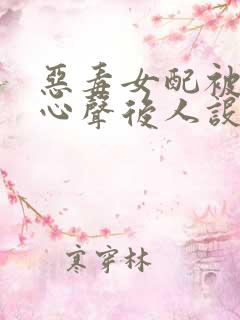 惡毒女配被
心聲後人設
寒穿林